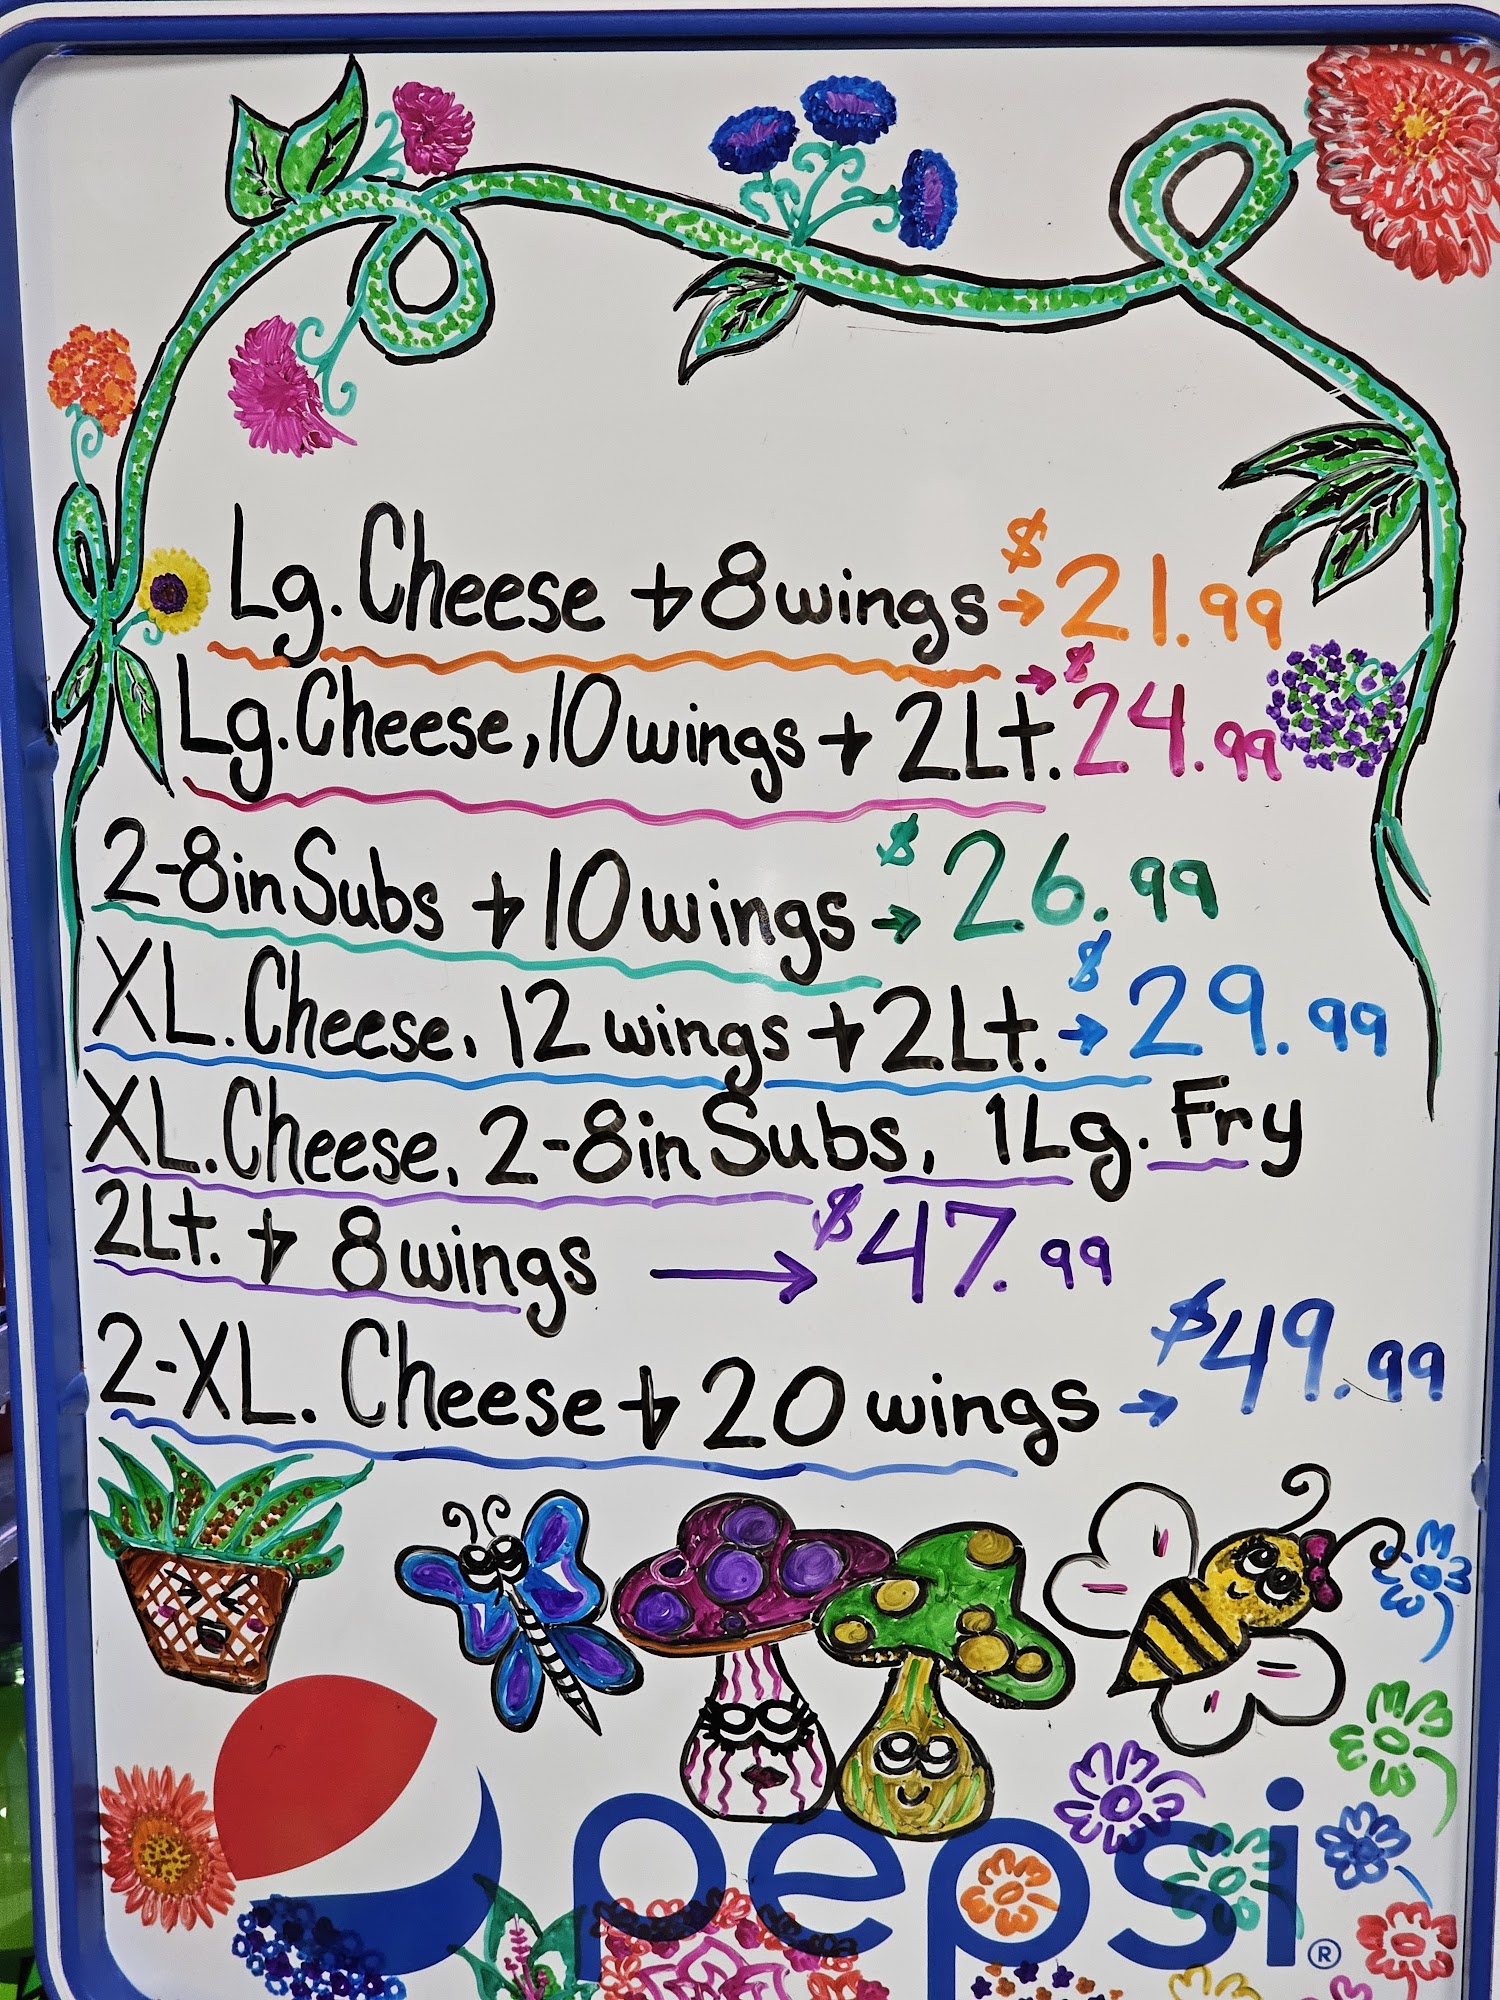 Lg. Cheese + 8 wings → $21.99
Lg. Cheese, 10 wings + 2Lt. → $24.99
2-8in Subs + 10 wings → $26.99
XL. Cheese, 12 wings + 2Lt. → $29.99
XL. Cheese, 2-8in Subs, 1 Lg. Fry
2Lt. + 8 wings → $47.99
2-XL. Cheese + 20 wings → $49.99
pepsi®